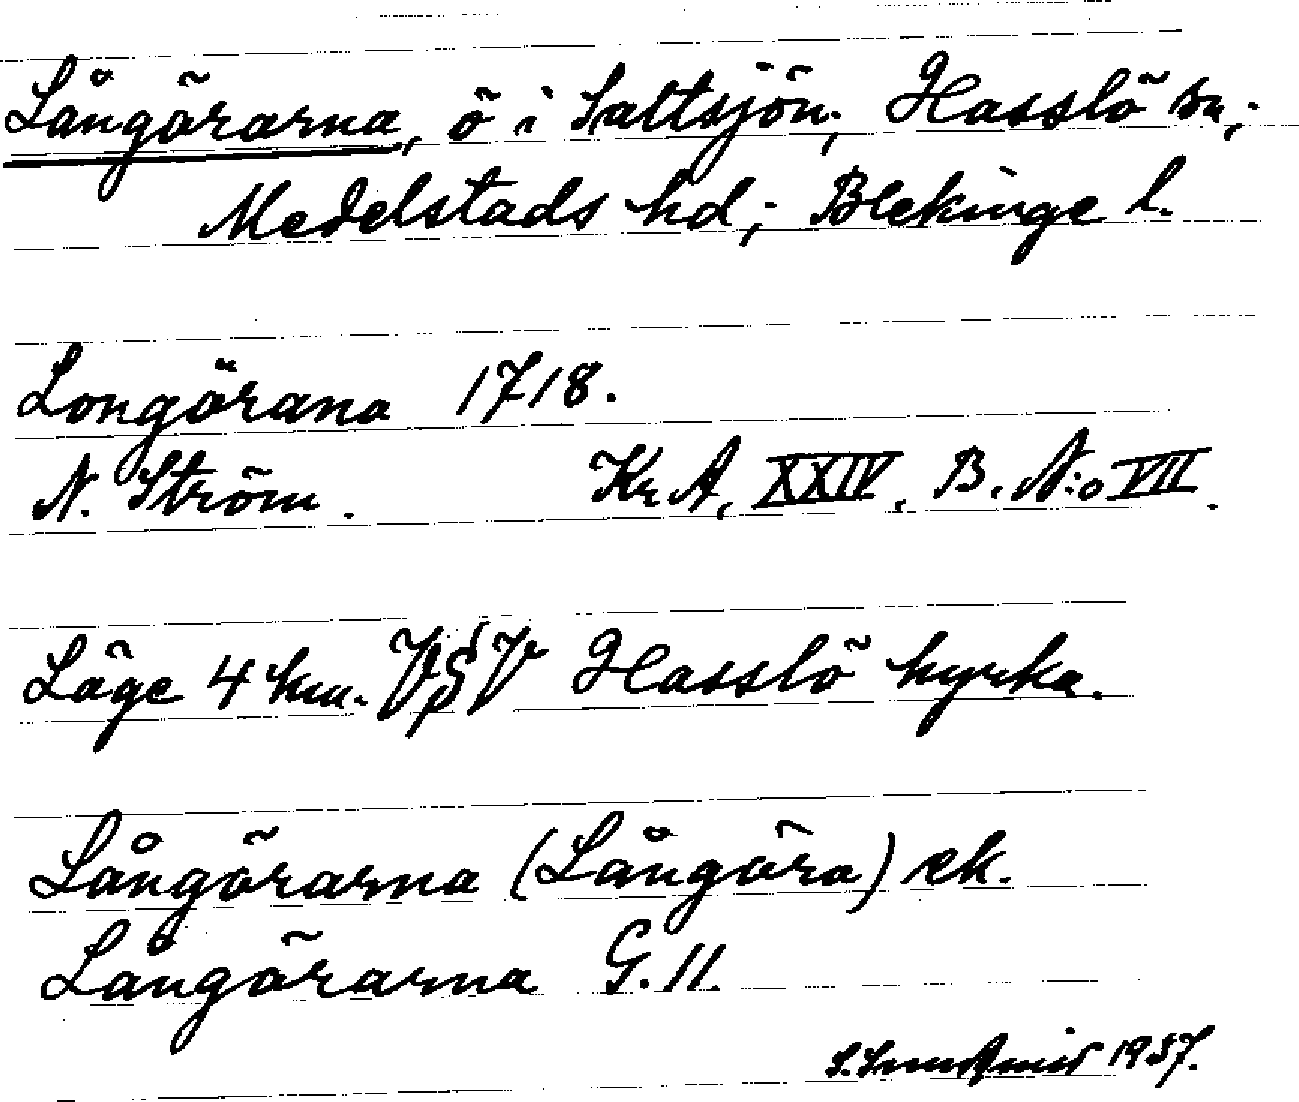 Långörarna, ö i Saltsjön; Hasslö sn;
Medelstads hd; Blekinge l.
Longörana 1718.
N. Ström. Kr. A, XXIV. B. N:o VII.
Läge 4 km. VSV Hasslö kyrka.
Långörarna (Långöra) ek.
Långörarna G. 11.
1937.